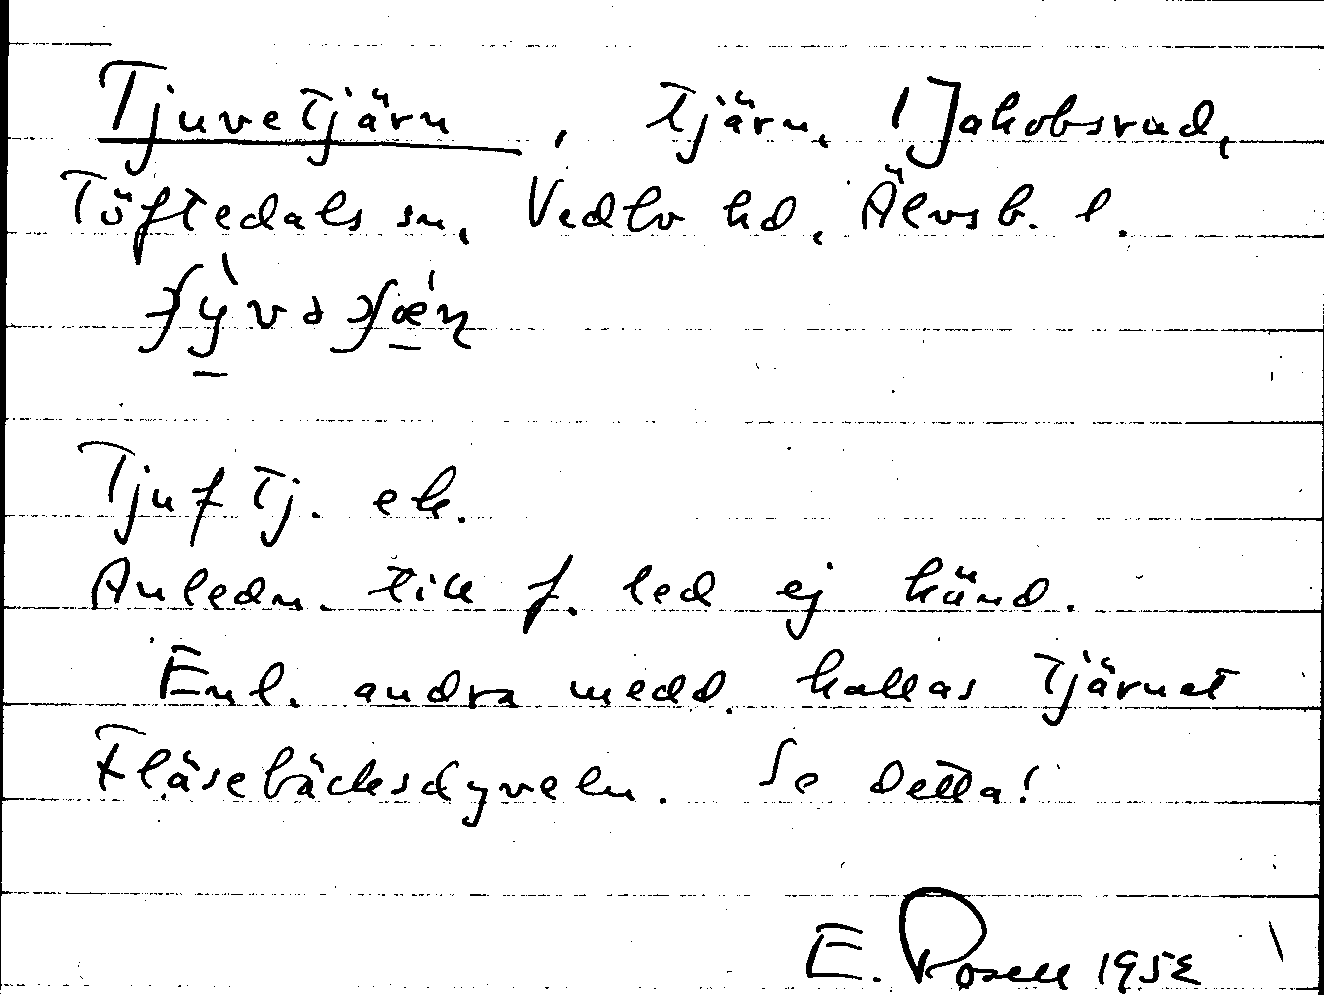 Tjuvetjärn, tjärn, 1 Jakobsrud,
Töftedals sn, Vedbo hd, Älvsb. l.
Tjuftj. ek.
Anledn. till f. led ej känd.
Enl. andra medd. kallas tjärnet
Fläsebäcksdyveln. Se detta!
E. Rosell 1952